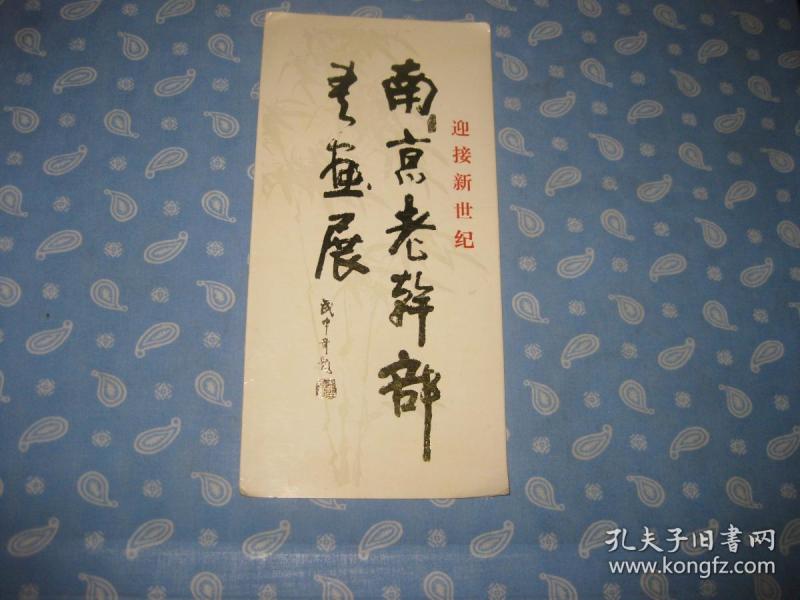 迎接新世纪
南京老幹部
书画展
武中奇题
孔夫子旧书网
www.kongfz.com